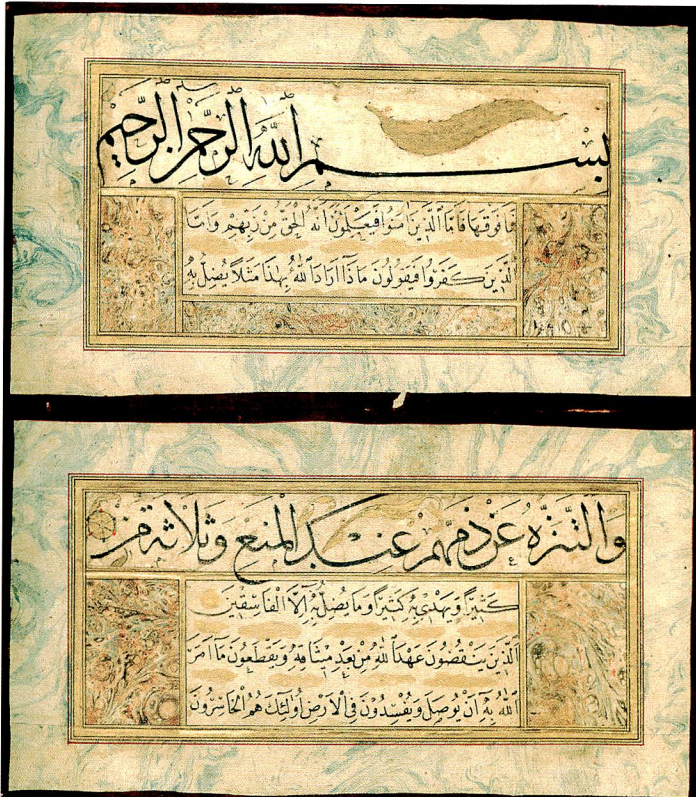 بسم الله الرحمن الرحيم
فما فوقها فاما الذين امنوا فيعلمون انه الحق من ربهم واما
الذين كفروا فيقولون ماذا اراد الله بهذا مثلا يضل به
والتنزه عن ذمهم عند المنع وثلاثة من
كثيرا ويهدي به كثيرا وما يضل به الا الفاسقين
الذين ينقضون عهد الله من بعد ميثاقه ويقطعون ما امر
الله به ان يوصل ويفسدون في الارض اولئك هم الخاسرون